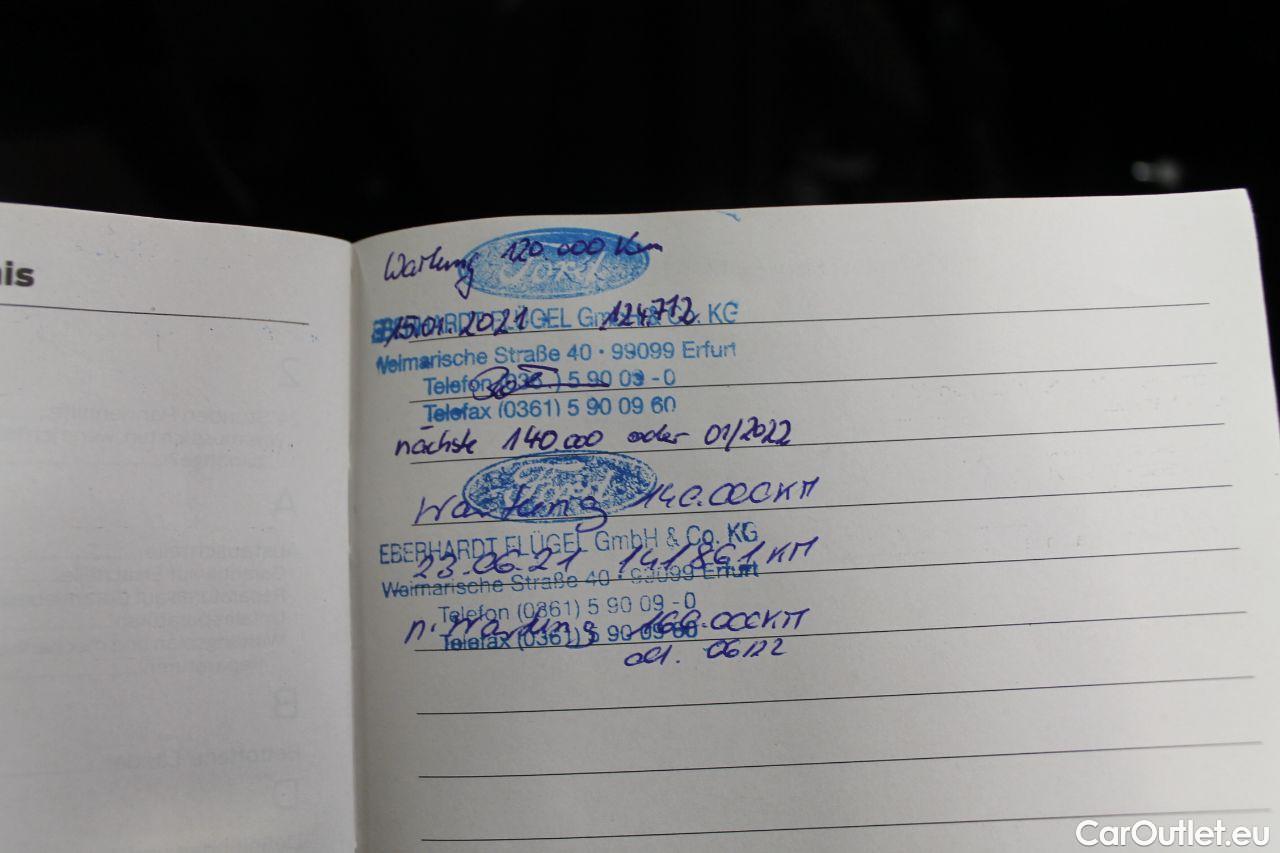 nis
Wartung 120.000 Km
Ford
EBERHARDT FLÜGEL GmbH & Co. KG
15.01.2021 124712
Weimarische Straße 40 · 99099 Erfurt
Telefon (0361) 5 90 09 - 0
Telefax (0361) 5 90 09 60
nächste 140.000 oder 01/2022
Ford
Wartung 140.000KM
EBERHARDT FLÜGEL GmbH & Co. KG
23.06.21 141861KM
Weimarische Straße 40 · 99099 Erfurt
Telefon (0361) 5 90 09 - 0
n. Wartung 160.000KM
Telefax (0361) 5 90 09 60
od. 06/22
CarOutlet.eu